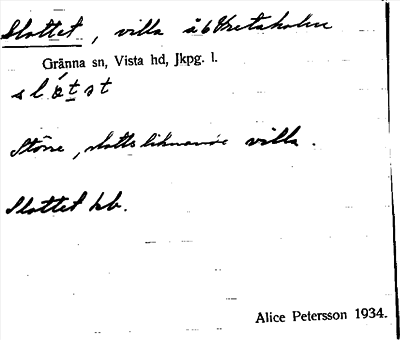 Slottet, villa å 6 Gretaholm
Gränna sn, Vista hd, Jkpg. l.
slótət
Större, slottsliknande villa.
Slottet hb.
Alice Petersson 1934.